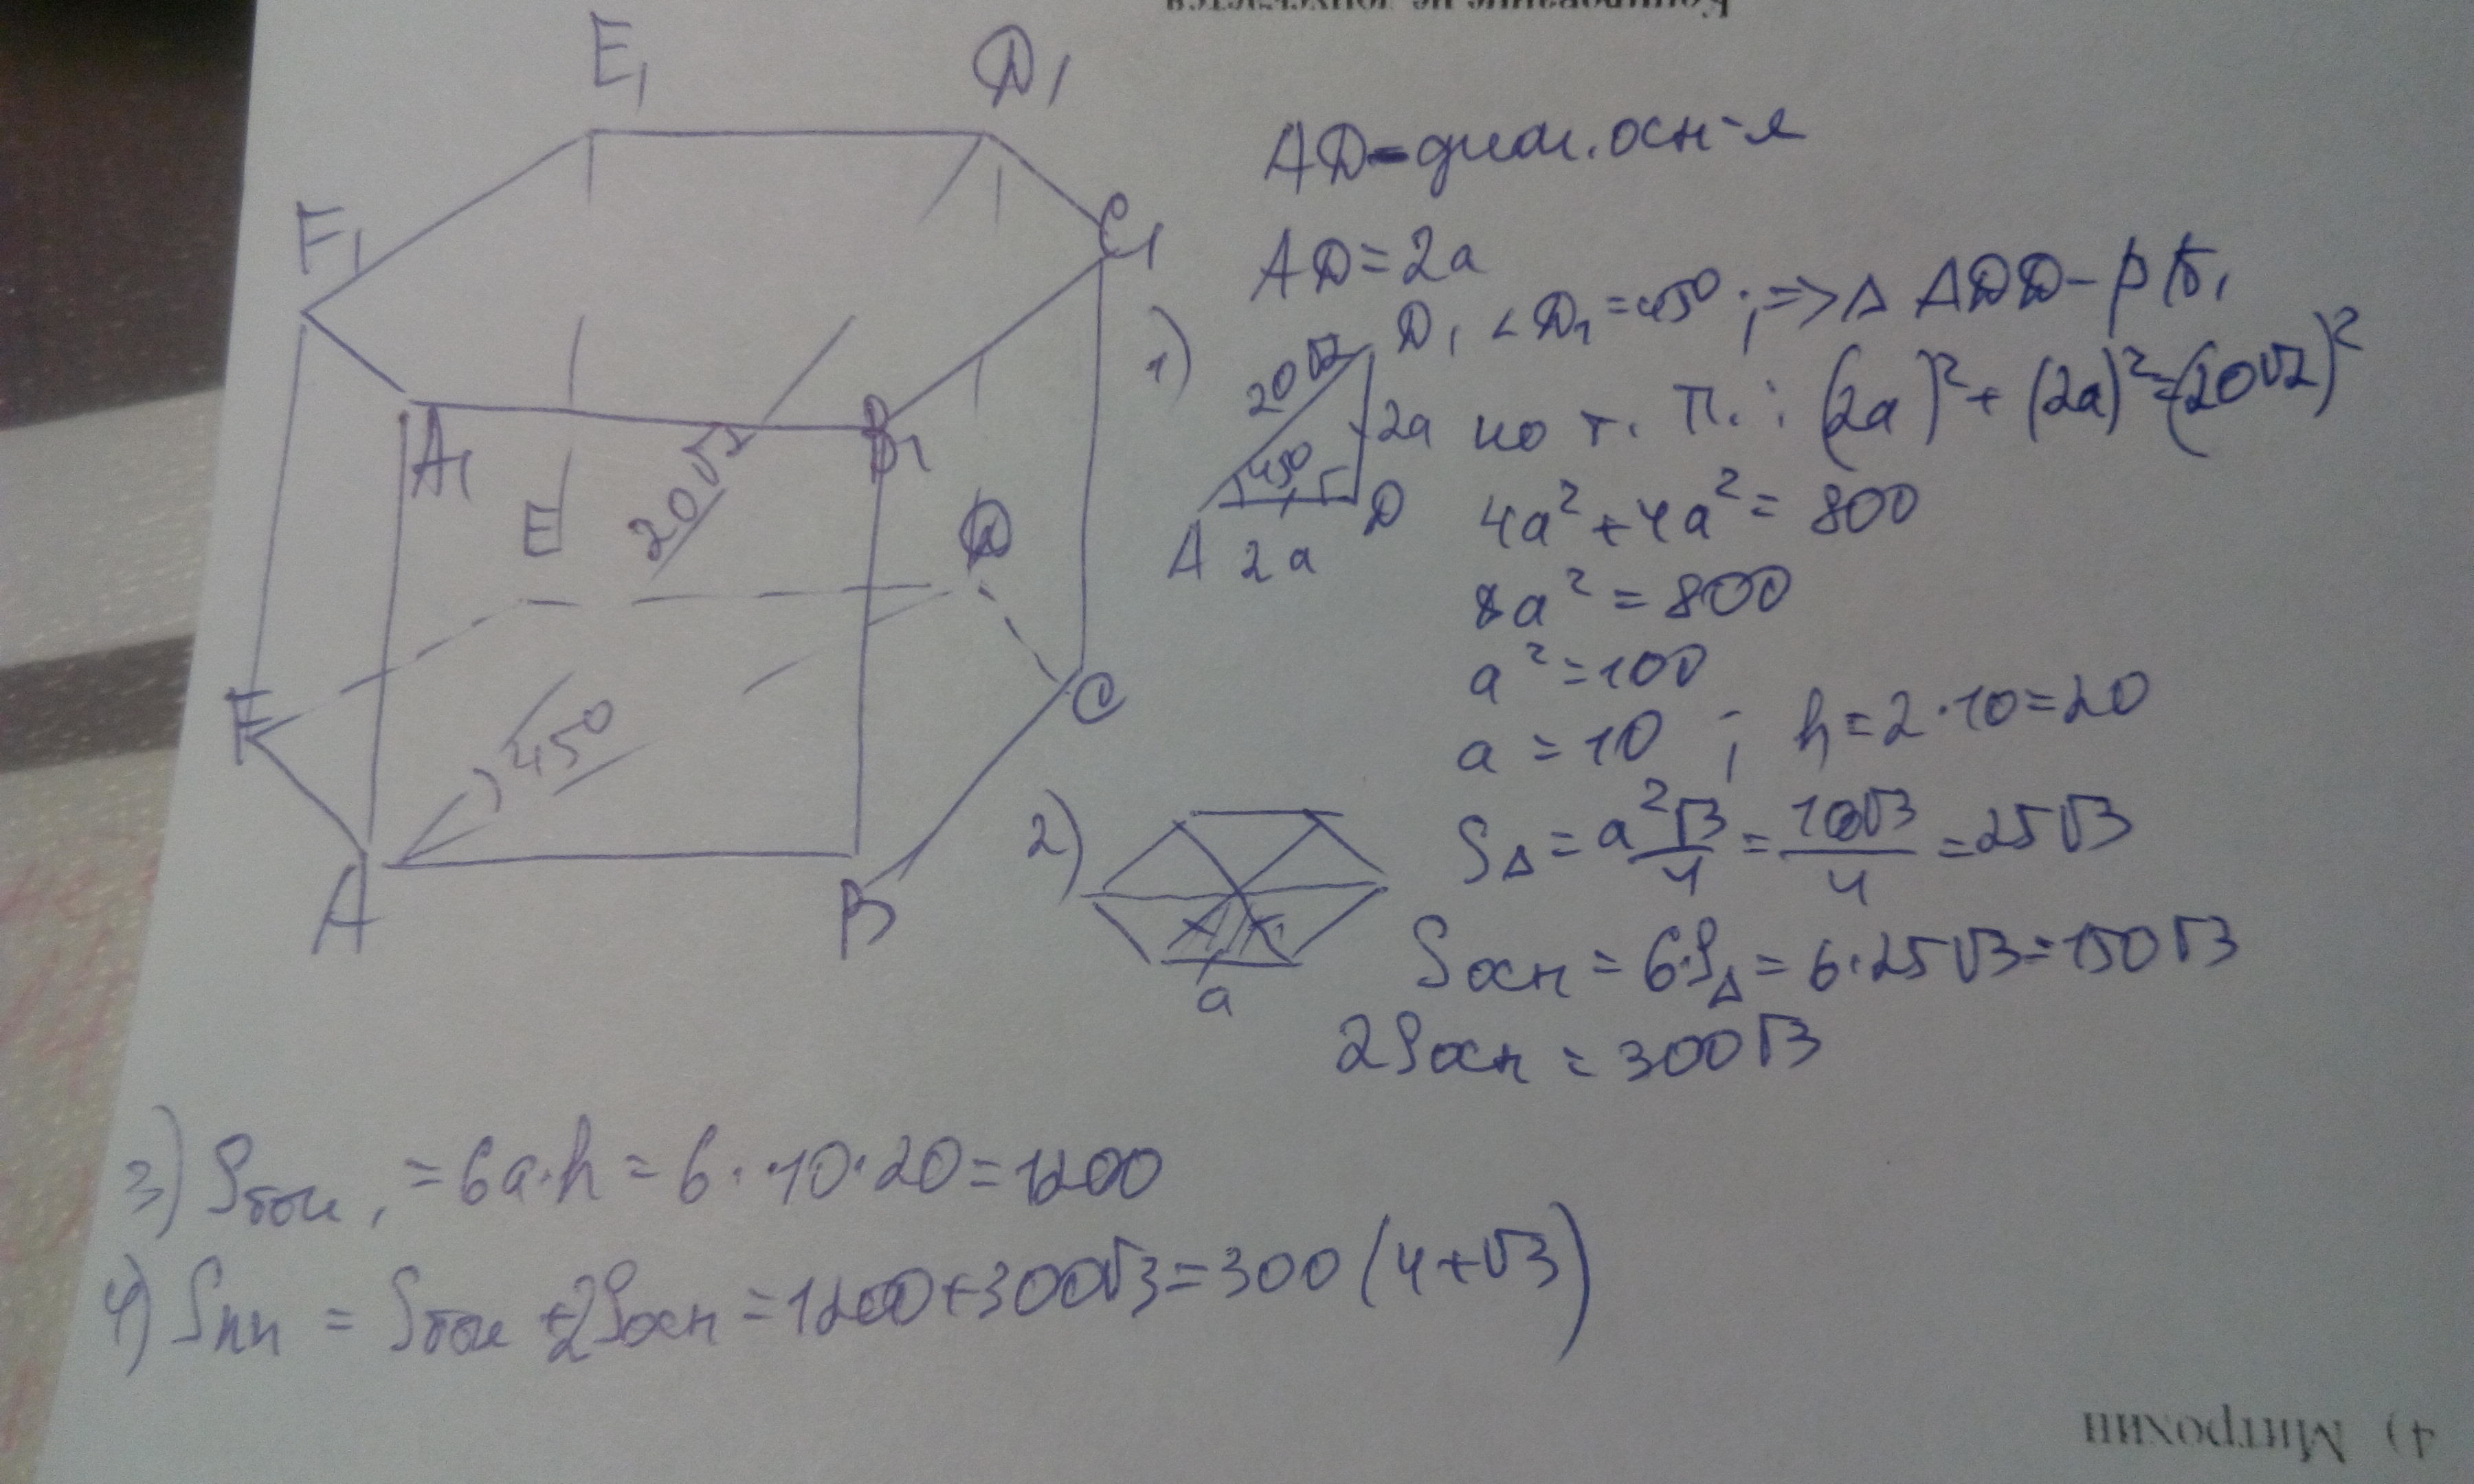 Копирование не допускается
E₁
D₁
F₁
C₁
A₁
B₁
E
D
20√2
F
C
45⁰
A
B
AD-диаг. осн-я
AD=2a
1)
D₁ <D₁=45⁰; => Δ ADD- р/б,
20√2
45⁰
2a
A
2a
D
по т. П.: (2a)²+(2a)²=(20√2)²
4a²+4a²=800
8a²=800
a²=100
a=10; h=2·10=20
2)
a
S∆=a²√3/4=100√3/4=25√3
Sосн=6·S∆=6·25√3=150√3
2Sосн=300√3
3) Sбок,=6a·h=6·10·20=1200
4) Sпп=Sбок+2Sосн=1200+300√3=300(4+√3)
4) Митрохин